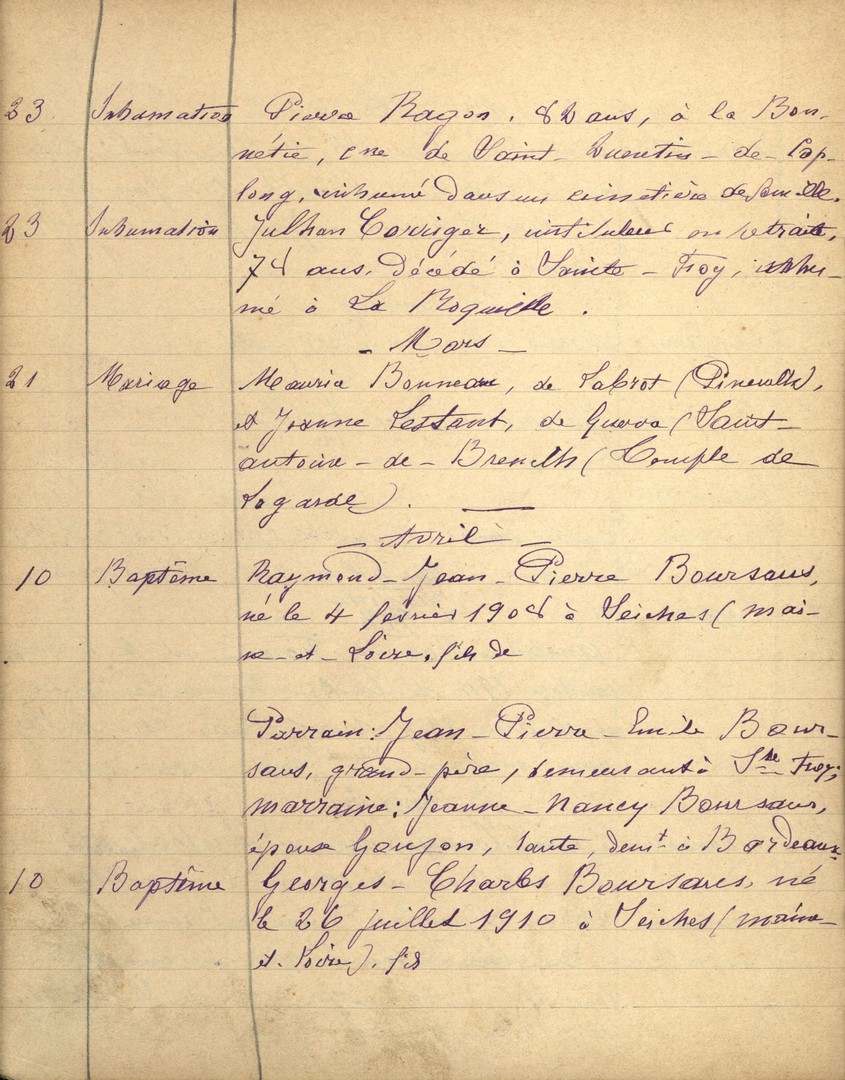 23 Inhumation Pierre Ragon, 82 ans, à la Bon-
nétie, cne de Saint-Quentin-de-Cap-
long, inhumé dans un cimetière de famille.
23 Inhumation Julhan Corriger, instituteur en retraite,
78 ans, décédé à Sainte-Foy, inhu-
mé à La Roquille.
- Mars -
21 Mariage Bonneau, de Labrot (Pineuilh),
et Jeanne Lestant, de (Saint-
antoine-de-Breuilh (Temple de
Lagarde).
- Avril -
10 Baptême Raymond-Jean-Pierre Boursaus,
né le 4 février 1908 à Seiches (mai-
ne-et-Loire, fils de
Parrain: Jean-Pierre-Emile Bour-
saus, grand-père, demeurant à Ste Foy;
marraine: Jeanne-Nancy Boursaus,
épouse Goujon, tante, demt à Bordeaux
10 Baptême Georges-Charles Boursaus, né
le 26 juillet 1910 à Seiches (maine-
et-Loire), fils